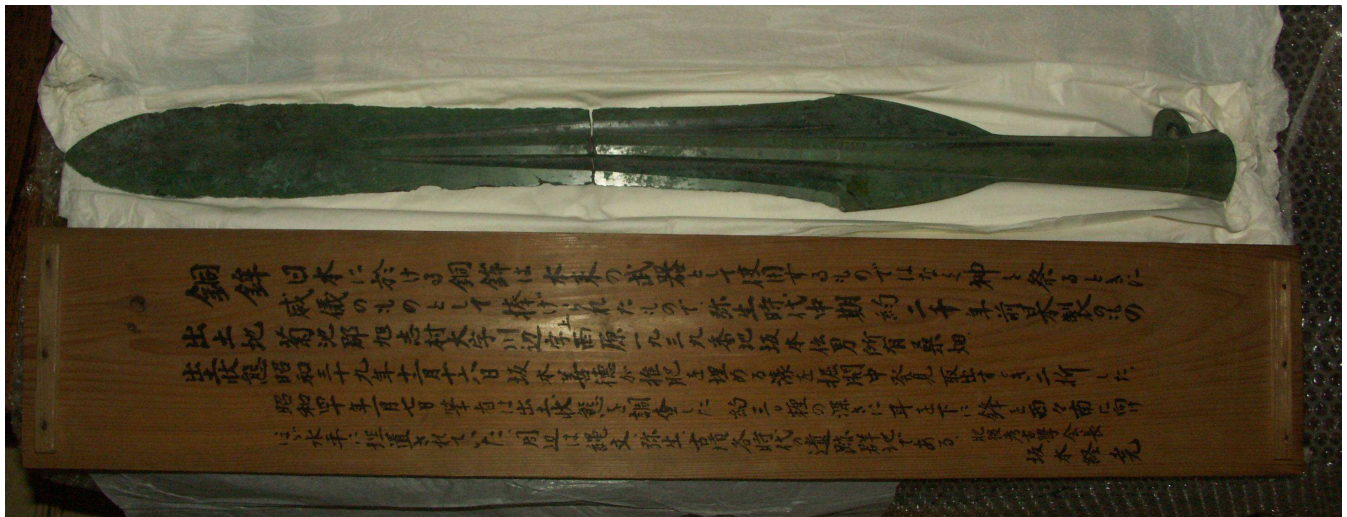 銅鉾 日本に於ける銅鉾は本来の武器として使用するものではなく神を祭るときに
威儀のものとして捧げられたもので弥生時代中期約二千年前 製のもの
出土地 菊池郡旭志村大字川辺字上西原一九三九番地坂本伝男所有桑畑
出土状態 昭和三十九年十二月十六日坂本善徳が堆肥を埋める濠を掘開中発見取出すとき二折した
昭和四十年一月七日 は出土状態を調査した 約三〇糎の深さに耳を下に鋒を西々南に向け
ほゞ水平に埋置されていた 附近は縄文弥生古墳各時代の遺跡群地である
肥後考古學会長
坂本経堯